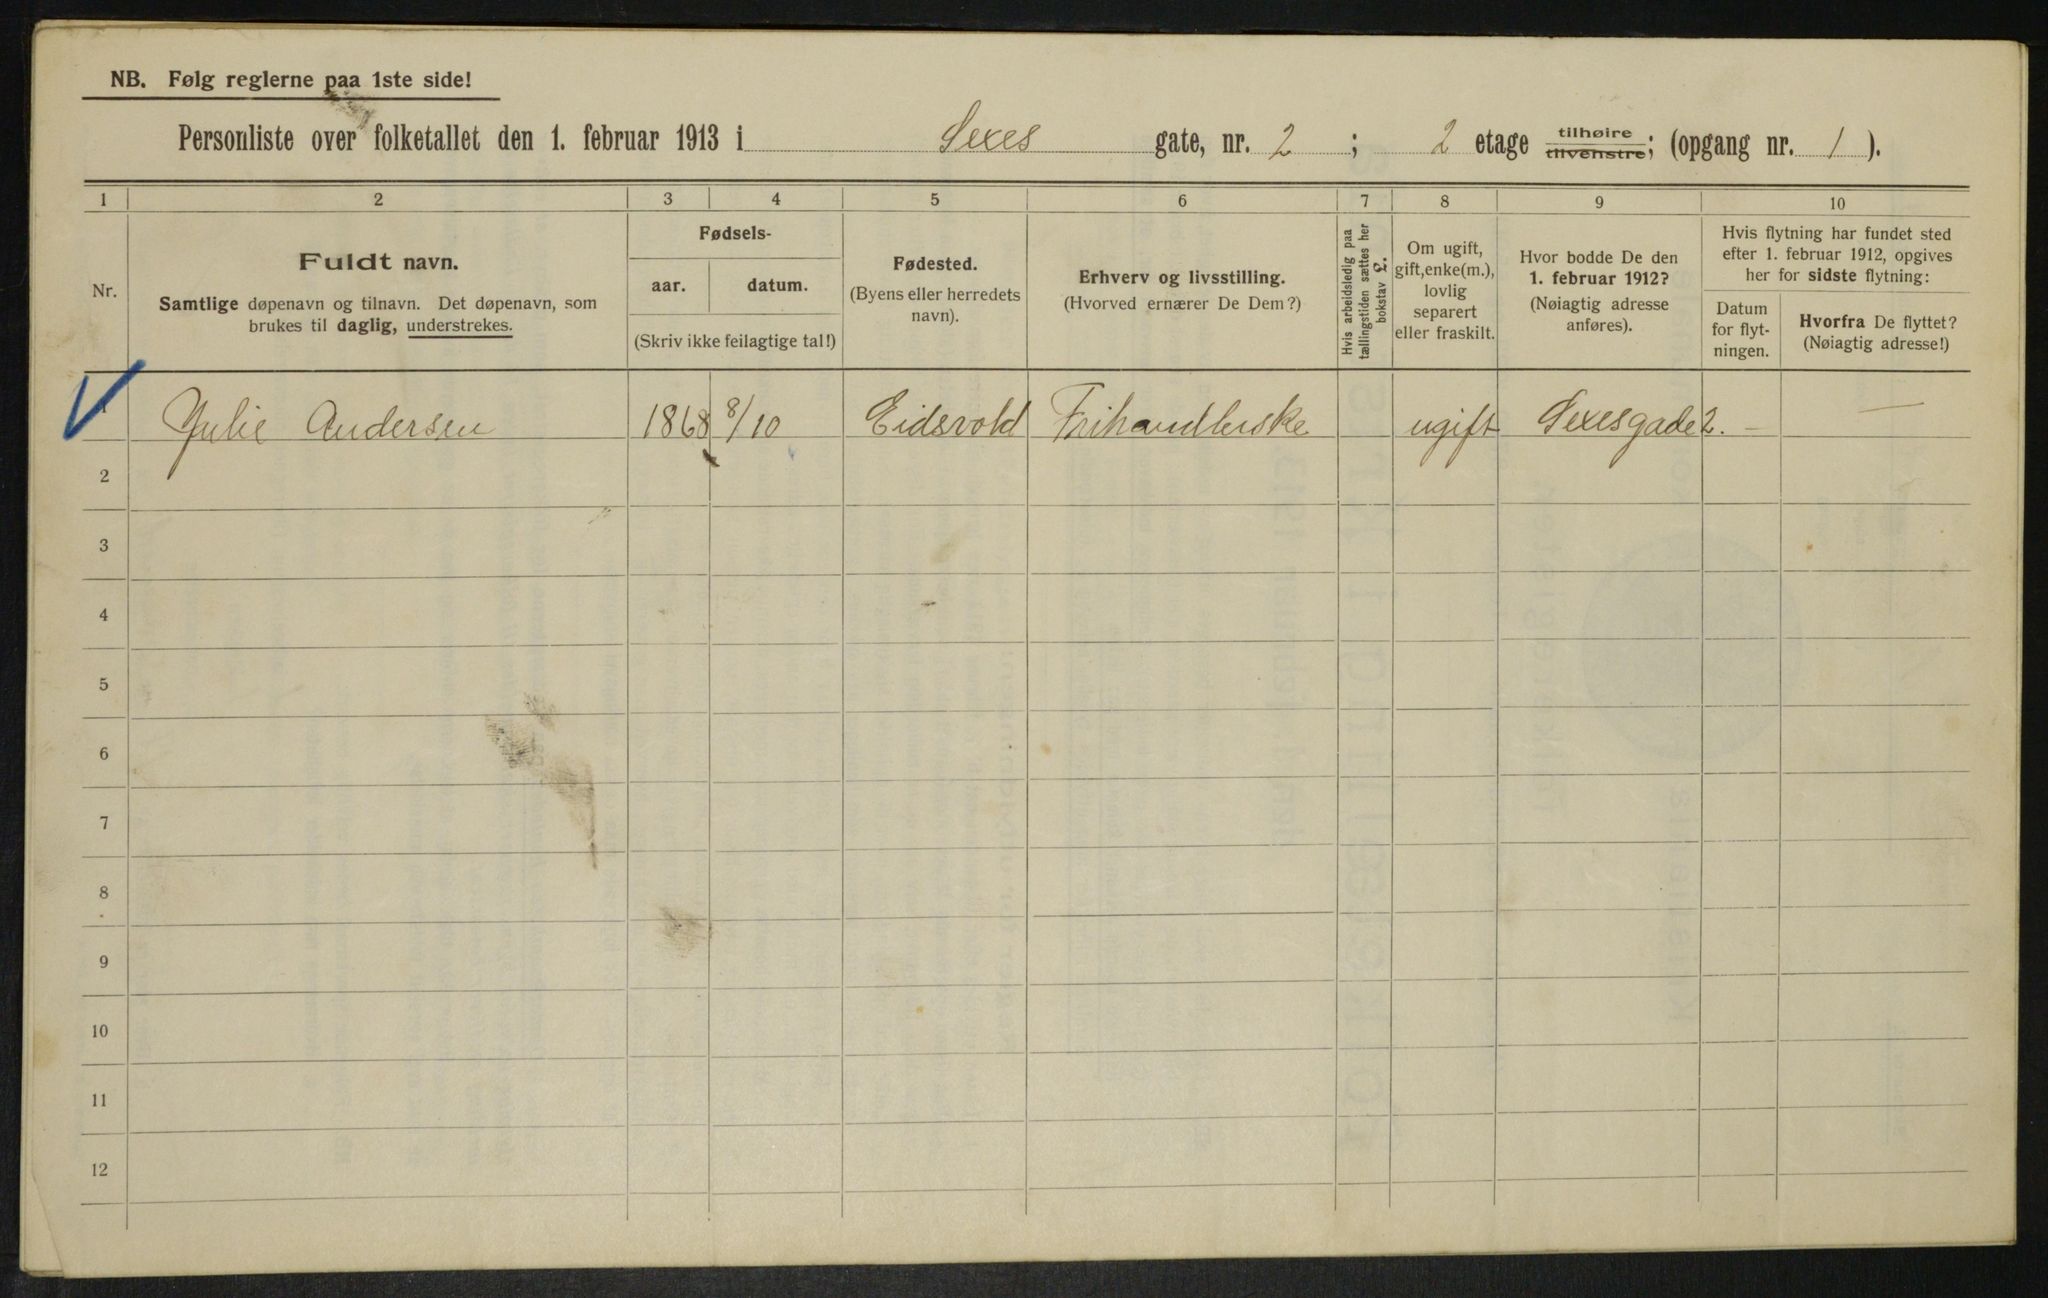 NB. Følg reglerne paa 1ste side!
Personliste over folketallet den 1. februar 1913 i Sexes gate, nr. 2 ; 2 etage tilhøire tilvenstre; (opgang nr. 1 ).
1 2 3 4 5 6 7 8 9 10
Nr.
Fuldt navn.
Samtlige døpenavn og tilnavn. Det døpenavn, som
brukes til daglig, understrekes.
Fødsels-
aar. datum.
(Skriv ikke feilagtige tal!)
Fødested.
(Byens eller herredets
navn).
Erhverv og livsstilling.
(Hvorved ernærer De Dem?)
Hvis arbeidsledig paa
tællingstiden sættes her
bokstav L.
Om ugift,
gift, enke(m.),
lovlig
separert
eller fraskilt.
Hvor bodde De den
1. februar 1912?
(Nøiagtig adresse
anføres).
Hvis flytning har fundet sted
efter 1. februar 1912, opgives
her for sidste flytning:
Datum
for flyt-
ningen.
Hvorfra De flyttet?
(Nøiagtig adresse!)
1 Julie Andersen 1868 8/10 Eidsvold Frihandlerske ugift Sexesgade 2. — —
2
3
4
5
6
7
8
9
10
11
12